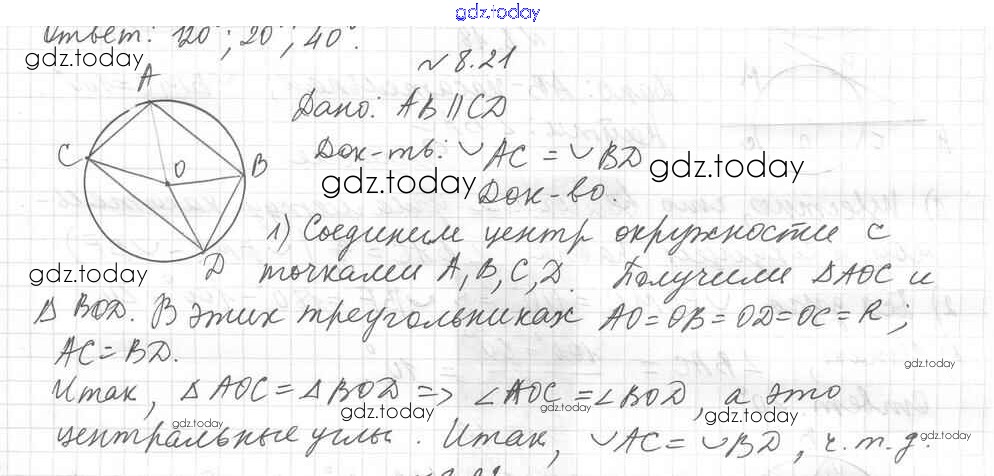 gdz.today
Ответ: 120°; 20°; 40°.
gdz.today
№ 8.21
A
Дано: AB ∥ CD
C
O
B
Док-ть: ◡AC = ◡BD
gdz.today
gdz.today
Док-во.
1) Соединим центр окружности с
D
gdz.today
точками A, B, C, D. Получили ΔAOC и
Δ BOD. В этих треугольниках AO=OB=OD=OC=R;
AC=BD.
gdz.today
Итак, ΔAOC=ΔBOD => ∠AOC=∠BOD, а это
gdz.today
gdz.today
gdz.today
центральные углы. Итак, ◡AC=◡BD, ч.т.д.
gdz.today
gdz.today